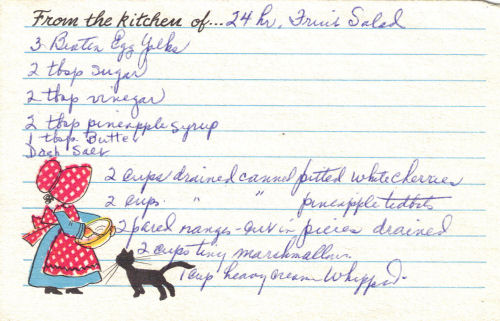 From the kitchen of... 24 hr. Fruit Salad
3 Beaten Egg Yolks
2 tbsp sugar
2 tbsp vinegar
2 tbsp pineapple syrup
1 tbsp Butter
Dash Salt
2 cups drained canned pitted white cherries
2 cups " " pineapple tidbits
2 pared oranges - cut in pieces drained
2 cups tiny marshmallows
1 cup heavy cream Whipped.